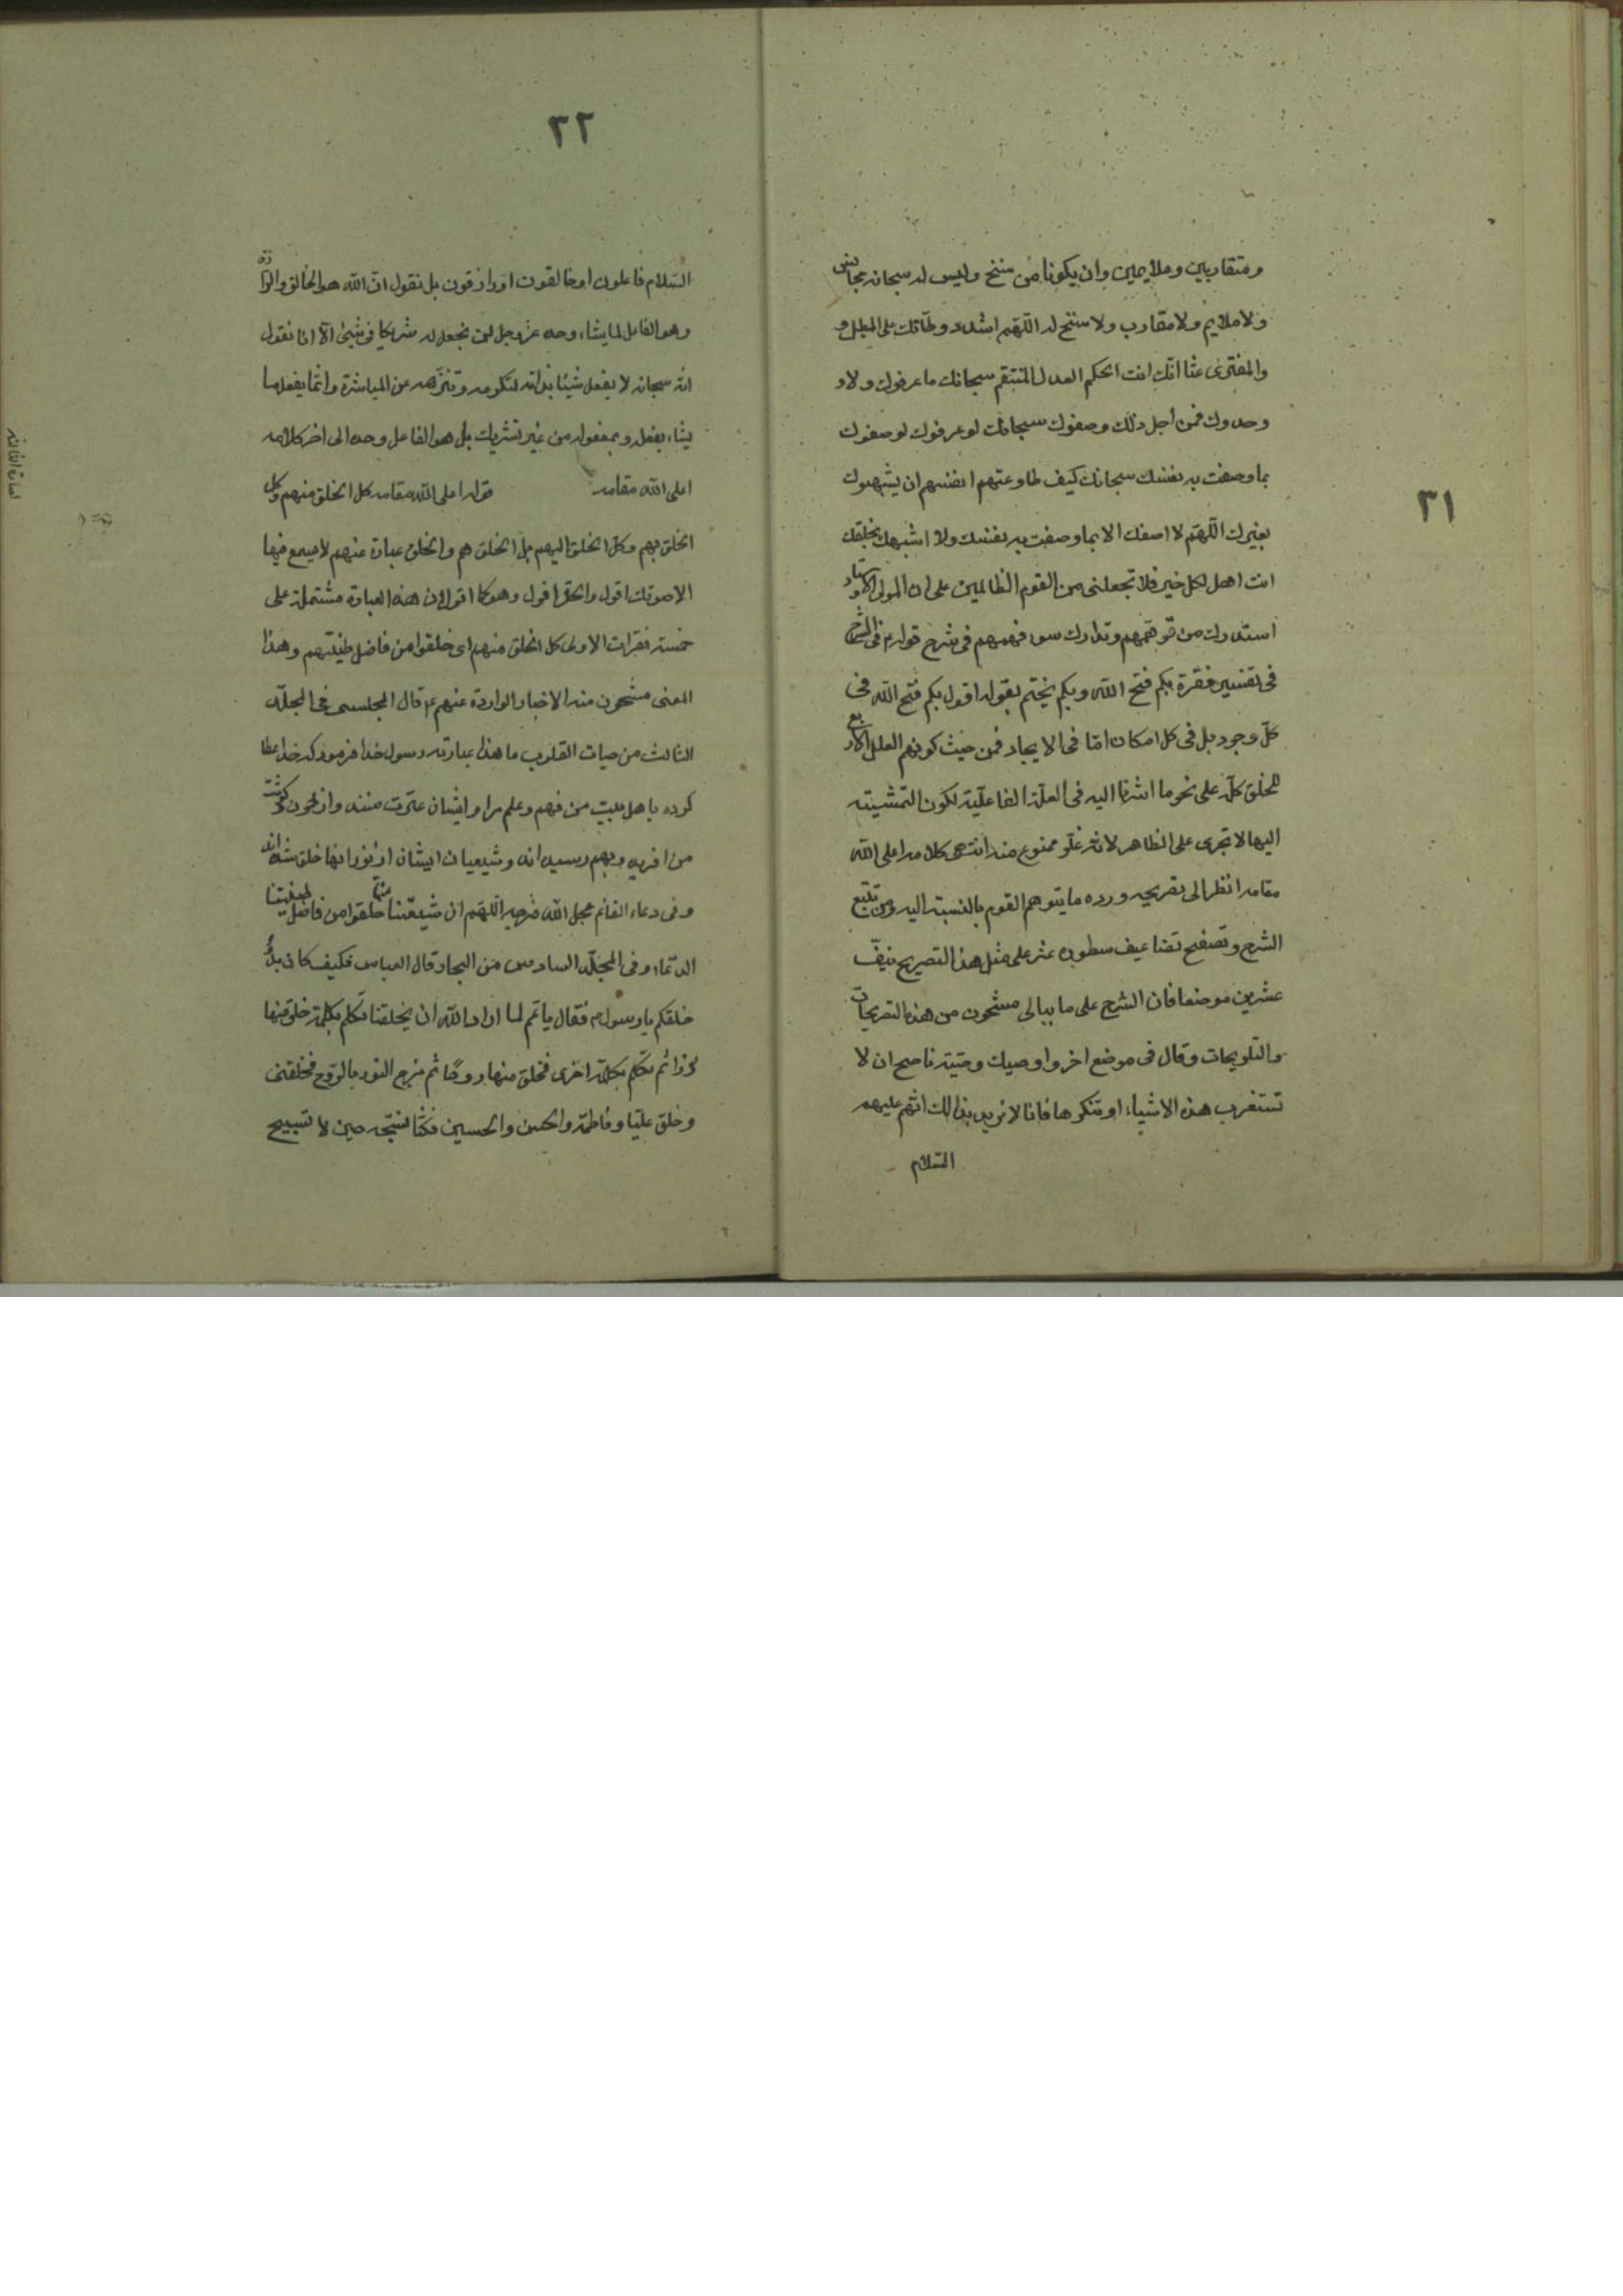 ٣١
ومتقاربين وملايمين وان يكونا من سنخ وليس له سبحانه مجانس
ولا ملايم ولا مقارب ولا سنخ له اللهم اشدد وطأتك على المبطل و
والمفترى عنا انك انت الحكم العدل المنتقم سبحانك ما عرفوك ولا و
وحدوك فمن اجل ذلك وصفوك سبحانك لو عرفوك لوصفوك
بما وصفت به نفسك سبحانك كيف طاوعتهم انفسهم ان يشبهوك
بغيرك اللهم لا اصفك الا بما وصفت به نفسك ولا اشبهك بخلقك
انت اهل لكل خير فلا تجعلنى من القوم الظالمين على ان المولى الاستاد
استدرك من توهمهم وتدارك سوء فهمهم فى شرح قوله ع فى الشرح
فى تفسير فقرة بكم فتح الله وبكم يختم بقوله اقول بكم فتح الله فى
كل وجود بل فى كل امكان امّا فى الايجاد فمن حيث كونهم العلل الاربع
للخلق كلّه على نحو ما اشرنا اليه فى العلّة الفاعليّة لكون التمشيته
اليها لا تجرى على الظاهر لانه غلو ممنوع منه انتهى كلامه اعلى الله
مقامه انظر الى تصريحه ورده ما يتوهم القوم بالنسبة اليه ومن تتبع
الشرح وتصفح تضاعيف سطوره عثر على مثل هذا التصريح نيف
عشرين موضعا فان الشرح على ما ببالى مشحون من هذه التصريحات
والتلويحات وقال فى موضع اخر واوصيك وصية ناصح ان لا
تستغرب هذه الاشياء او تنكرها فانا لا نريد بذالك انهم عليهم
السّلام
٣٢
السّلام فاعلون او خالقون او رازقون بل نقول انّ الله هو الخالق والرازق
وهو الفاعل لما يشاء وحده عز وجل لن نجعل له شريكا فى شيئ الّا انا نقول
انّه سبحانه لا يفعل شيئا بذاته لتكرمه وتنزّهه عن المباشرة وانما يفعل ما
يشاء بفعله وبمفعوله من غير تشريك بل هو الفاعل وحده الى اخر كلامه
اعلى الله مقامه قوله اعلى الله مقامه كل الخلق منهم وكل
الخلق بهم وكل الخلق اليهم بل الخلق هم والخلق عبارة عنهم لا يسمع فيها
الا صوتك اقول والحق اقول وهو كما اقول ان هذه العبارة مشتملة على
خمسة فقرات الاولى كل الخلق منهم اى خلقوا من فاضل طينتهم وهذا
المعنى مشحون منه الاخبار الواردة عنهم ع قال المجلسى فى المجلّد
الثالث من حيات القلوب ما هذا عبارته رسول خدا فرمود كه خدا عطا
كرده باهل بيت من فهم وعلم مرا وايشان عترت منند واز خون وگوشت
من افريده وبهم رسيده اند وشيعيان ايشان از نور انها خلق شده اند
وفى دعاء القائم عجل الله فرجه اللهم ان شيعتنا منا خلقوا من فاضل طينتنا
الدّعاء وفى المجلّد السادس من البحار قال العباس فكيف كان بدؤ
خلقكم يا رسول م فقال يا عم لما اراد الله ان يخلقنا تكلم بكلمة خلق منها
نورا ثم تكلم بكلمة اخرى فخلق منها روحًا ثم مزج النور بالروح فخلقنى
وخلق عليّا وفاطمة والحسن والحسين فكنّا نسبّحه حين لا تسبيح